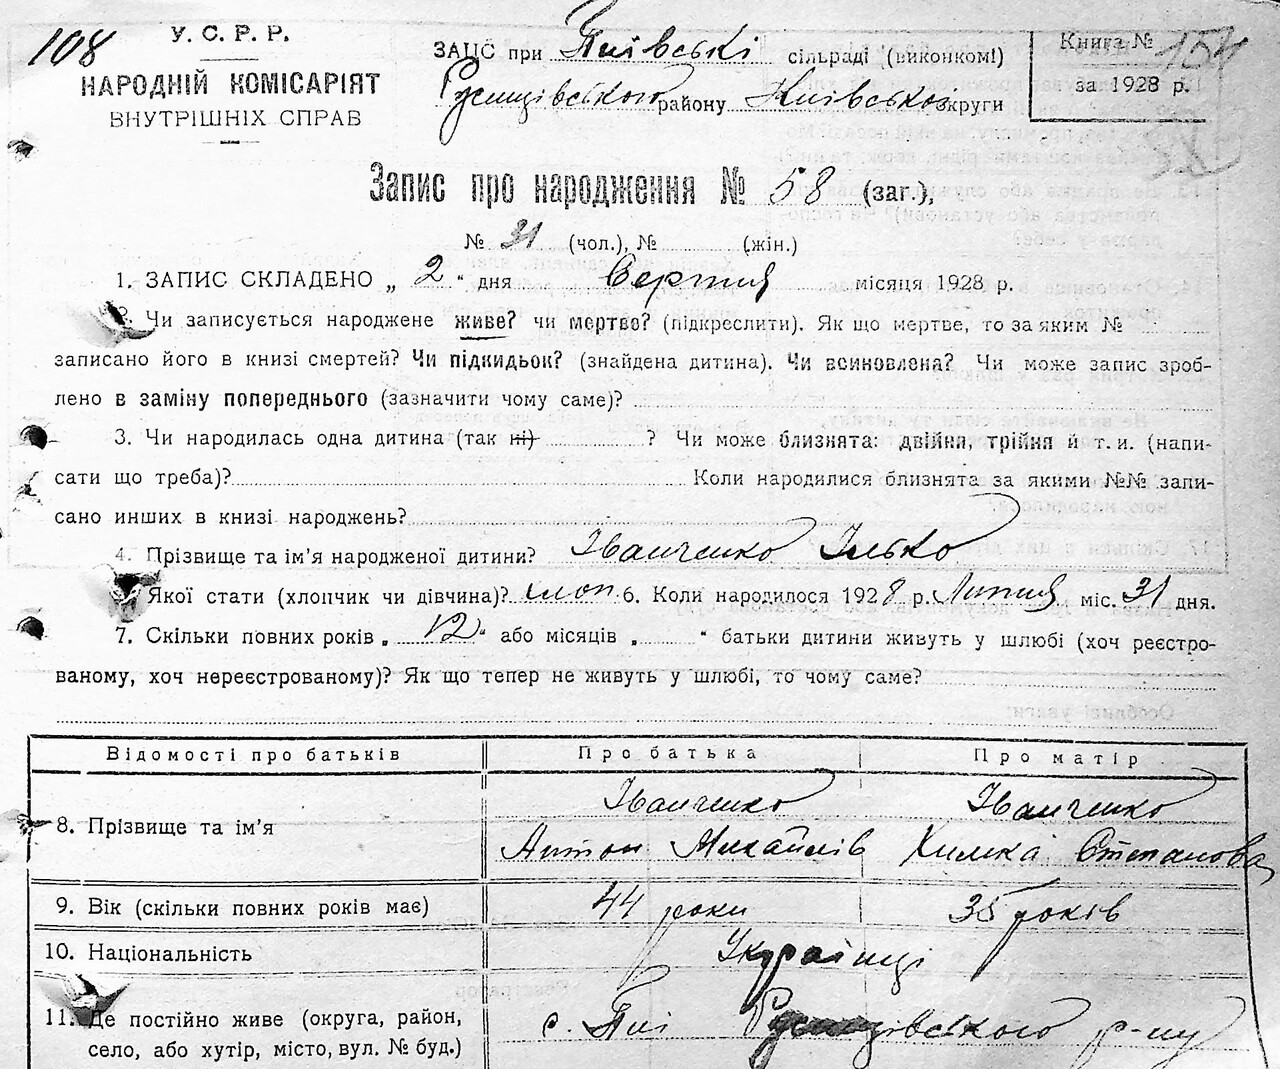 108
У. С. Р. Р.
НАРОДНІЙ КОМІСАРІЯТ
ВНУТРІШНІХ СПРАВ
ЗАЦС при Пиївські сільраді (виконкомі)
району Київсько округи
Книга № 154
за 1928 р.
Запис про народження № 58 (заг.),
№ 31 (чол.), № (жін.)
1. ЗАПИС СКЛАДЕНО „ 2 " дня Серпня місяця 1928 р.
2. Чи записується народжене живе? чи мертве? (підкреслити). Як що мертве, то за яким №
записано його в книзі смертей? Чи підкидьок? (знайдена дитина). Чи всиновлена? Чи може запис зроб-
лено в заміну попереднього (зазначити чому саме)?
3. Чи народилась одна дитина (так ні) ? Чи може близнята: двійня, трійня й т. и. (напи-
сати що треба)? Коли народилися близнята за якими №№ запи-
сано инших в книзі народжень?
4. Прізвище та ім'я народженої дитини? Іванченко Ілько
Якої стати (хлопчик чи дівчина)? хлоп. 6. Коли народилося 1928 р. Липня міс. 31 дня.
7. Скільки повних років „ 12 " або місяців „ " батьки дитини живуть у шлюбі (хоч реєстро-
ваному, хоч нереєстрованому)? Як що тепер не живуть у шлюбі, то чому саме?
Відомості про батьків Про батька Про матір
Іванченко Іванченко
8. Прізвище та ім'я Антон Михайлів Химка Степанова
9. Вік (скільки повних років має) 44 роки 35 років
10. Національність Українці
11. Де постійно живе (округа, район, с. Пиї р-ну
село, або хутір, місто, вул. № буд.)